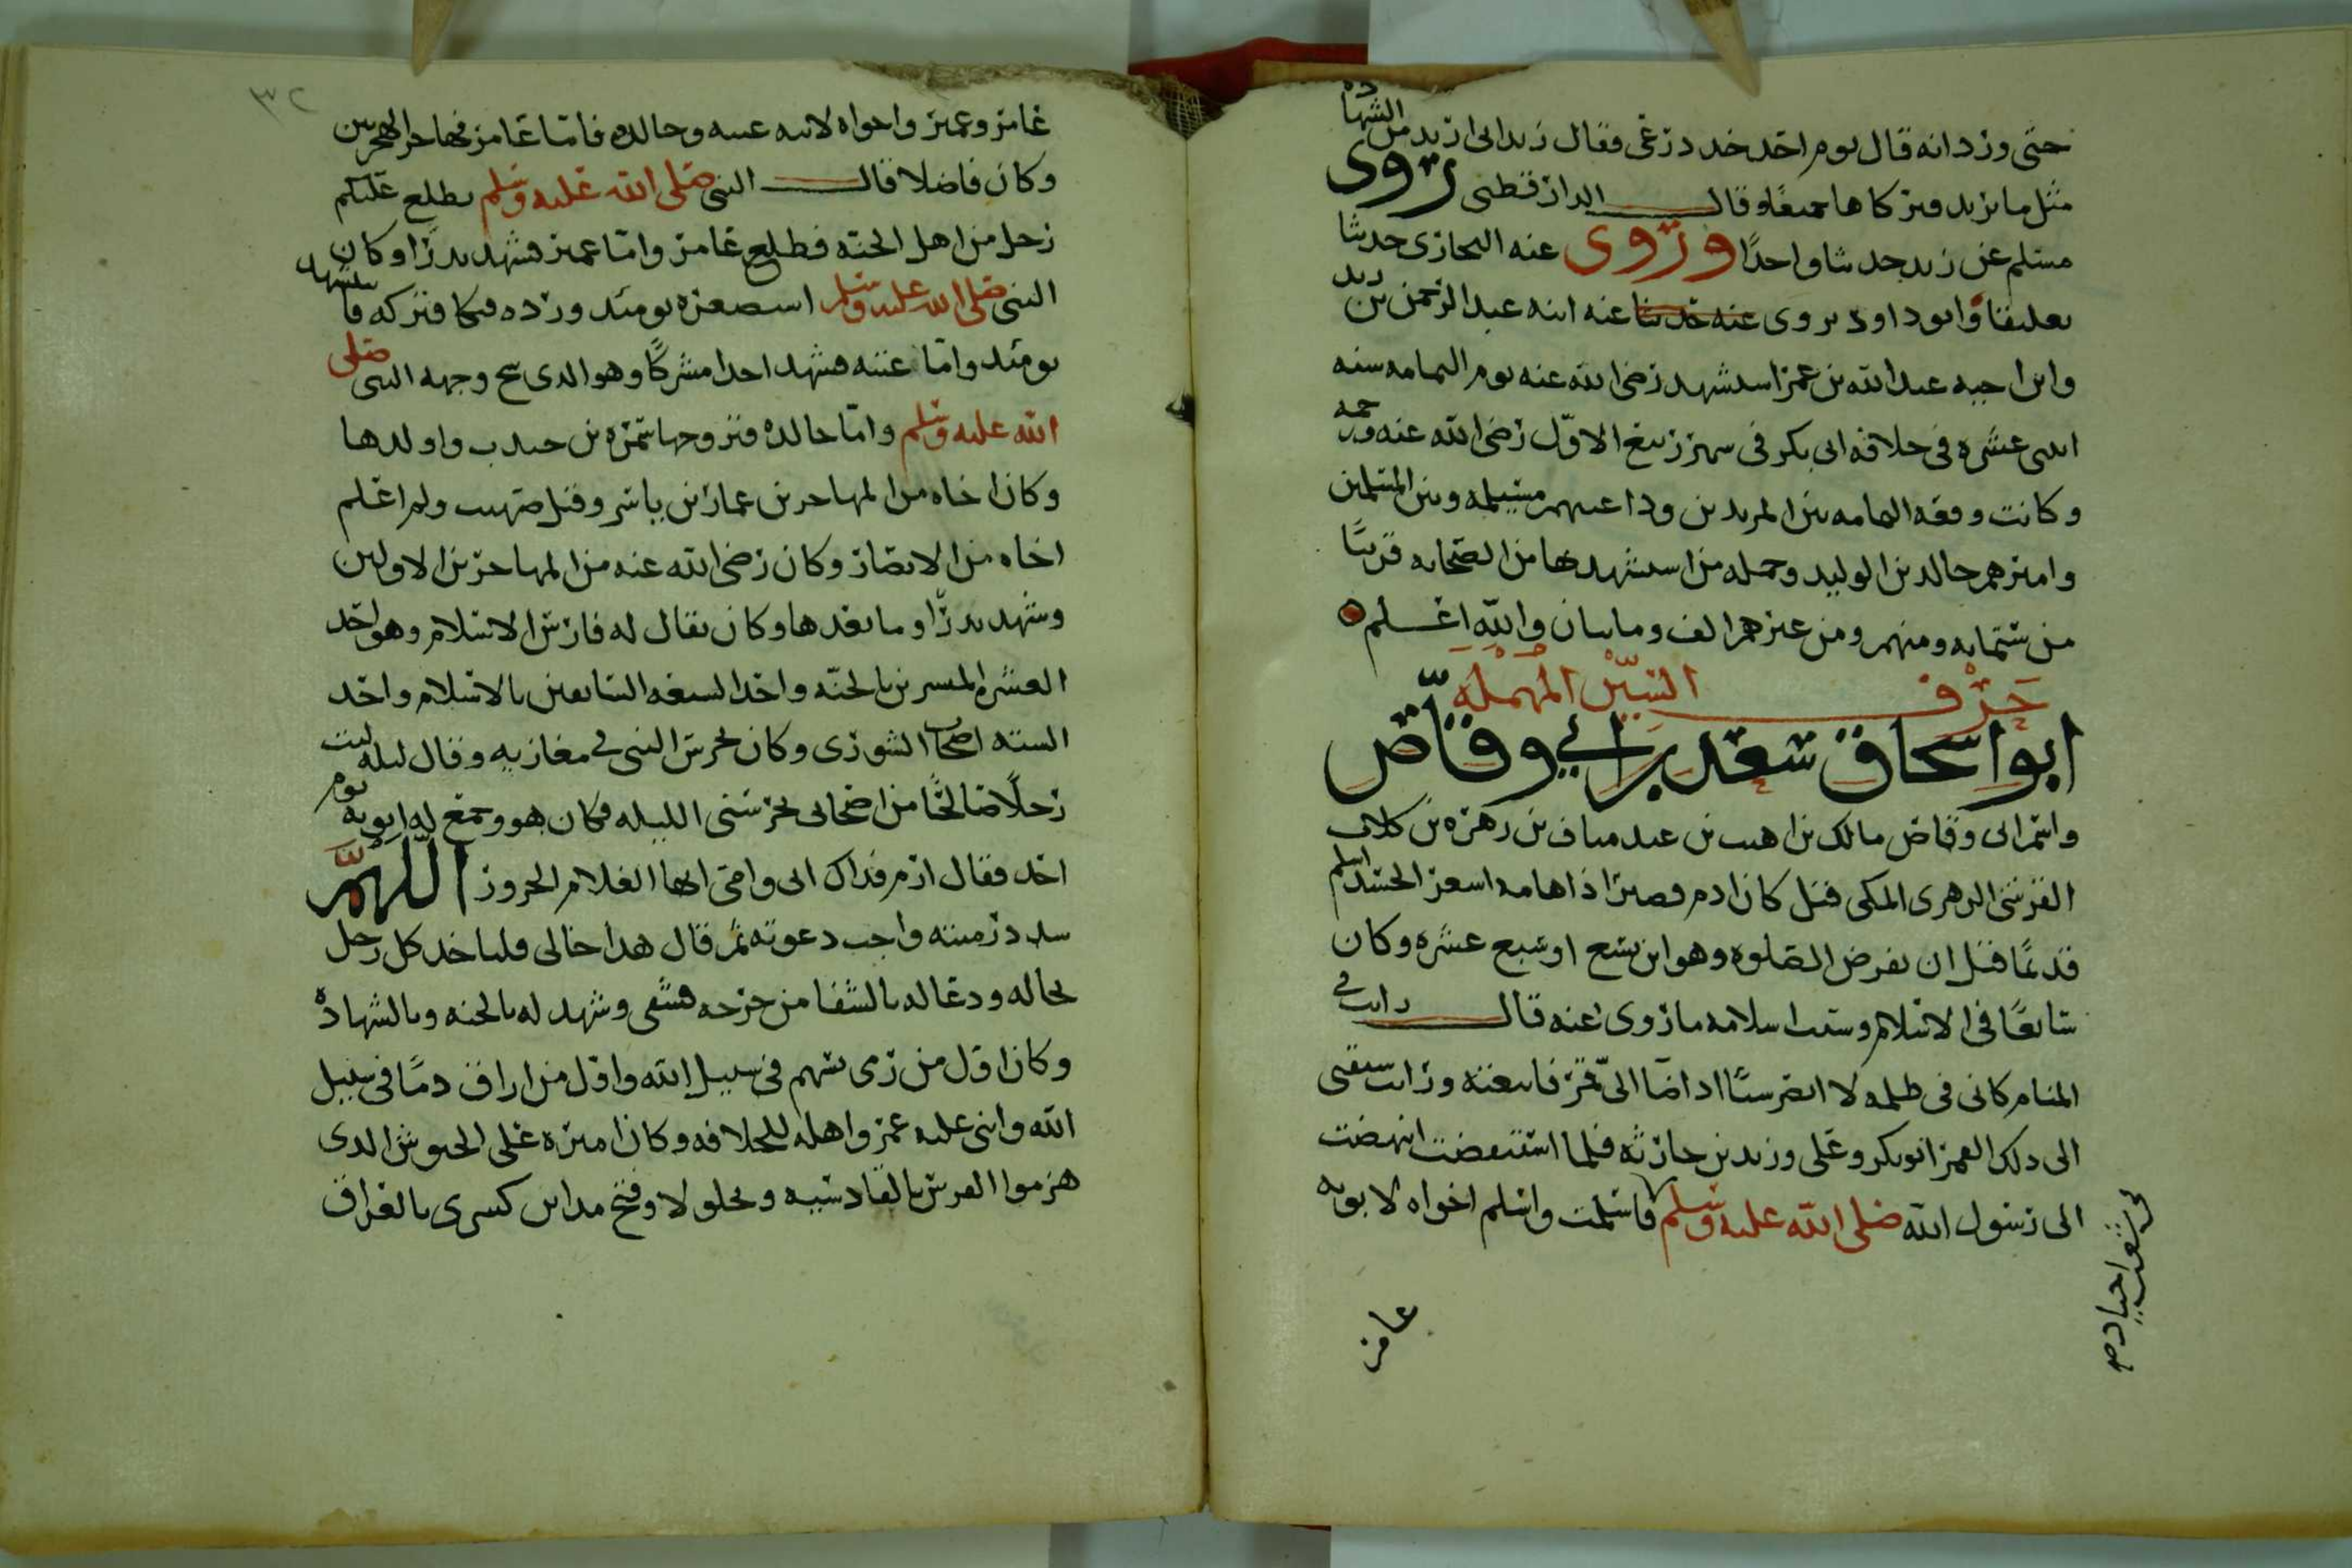 حتى وزد انه قال يوم احد خذ درعى فقال زيد انى اريد من الشهادة
مثل ما تريد فتركاها جميعًا وقال الدارقطنى روى
مسلم عن زيد حديثا واحدًا وروى عنه البخارى حديثا
تعليقا وابو داود يروى عنه حديثا عنه ابنه عبد الرحمن بن زيد
وابن اخيه عبد الله بن عمر استشهد رضى الله عنه يوم اليمامه سنه
اثنتى عشره فى خلافه ابى بكر فى شهر ربيع الاوّل رضى الله عنه ورحمه
وكانت وقعه اليمامه بين المرتدين وداعيهم مسيلمه وبين المسلمين
واميرهم خالد بن الوليد وجمله من استشهد بها من الصحابه قريبًا
من ستمايه ومنهم ومن غيرهم الف ومايتان والله اعلم
حرف السين المهمله
ابو اسحاق سعد بن ابي وقاص
واسم ابى وقاص مالك بن اهيب بن عبد مناف بن زهره بن كلاب
القرشى الزهرى المكى قيل كان ادم قصيرًا ذا هامه اشعر الجسد اسلم
قديمًا قبل ان تفرض الصلوة وهو ابن تسع او سبع عشره وكان
سابعًا فى الاسلام وسبب اسلامه ما روى عنه قال رايت في
المنام كانى فى ظلمه لا ابصر شيئًا اذ اضا الىّ قمر فاتبعته ورايت سبقنى
الى ذلك القمر ابو بكر وعلى وزيد بن حارثه فلما استيقضت انهضت
الى رسول الله صلى الله عليه وسلم فاسلمت واسلم اخواه لابويه
فى شعب اجياد صح
عامر
٣٢
عامر وعمير واخواه لابيه عتبه وخالده فاما عامر فهاجر الهجرتين
وكان فاضلا قال النبى صلى الله عليه وسلم يطلع عليكم
رجل من اهل الجنه فطلع عامر واما عمير فشهد بدرًا وكان
النبى صلى الله عليه وسلم استصغره يومئذ ورده فبكا فتركه فاستشهد
يومئذ واما عتبه فشهد احدا مشركًا وهو الذى شج وجهه النبى صلى
الله عليه وسلم وامّا خالده فتزوجها سمره بن جندب واولدها
وكان اخاه من المهاجرين عمار بن ياسر وقيل صهيب ولم اعلم
اخاه من الانصار وكان رضى الله عنه من المهاجرين الاولين
وشهد بدرًا وما بعدها وكان يقال له فارس الاسلام وهو احد
العشره المبشرين بالجنّه واحد السبعه السابقين بالاسلام واحد
السته اصحاب الشورى وكان يحرس النبى في مغازيه وقال ليله ليت
رجلًا صالحًا من اصحابى يحرسنى الليله فكان هو وجمع له ابويه يوم
احد فقال ارم فداك ابى وامى ايها الغلام الحزور اللهمّ
سدد رميته واجب دعوته ثم قال هذا خالى فلياخذ كل رجل
بخاله ودعا له بالشفا من جرحه فشفى وشهد له بالجنه وبالشهادة
وكان اول من رمى بسهم فى سبيل الله واول من اراق دمًا فى سبيل
الله واثنى عليه عمر واهله للخلافه وكان اميره على الجيوش الذى
هزموا الفرس بالقادسيه وبجلولا وفتح مداين كسرى بالعراق